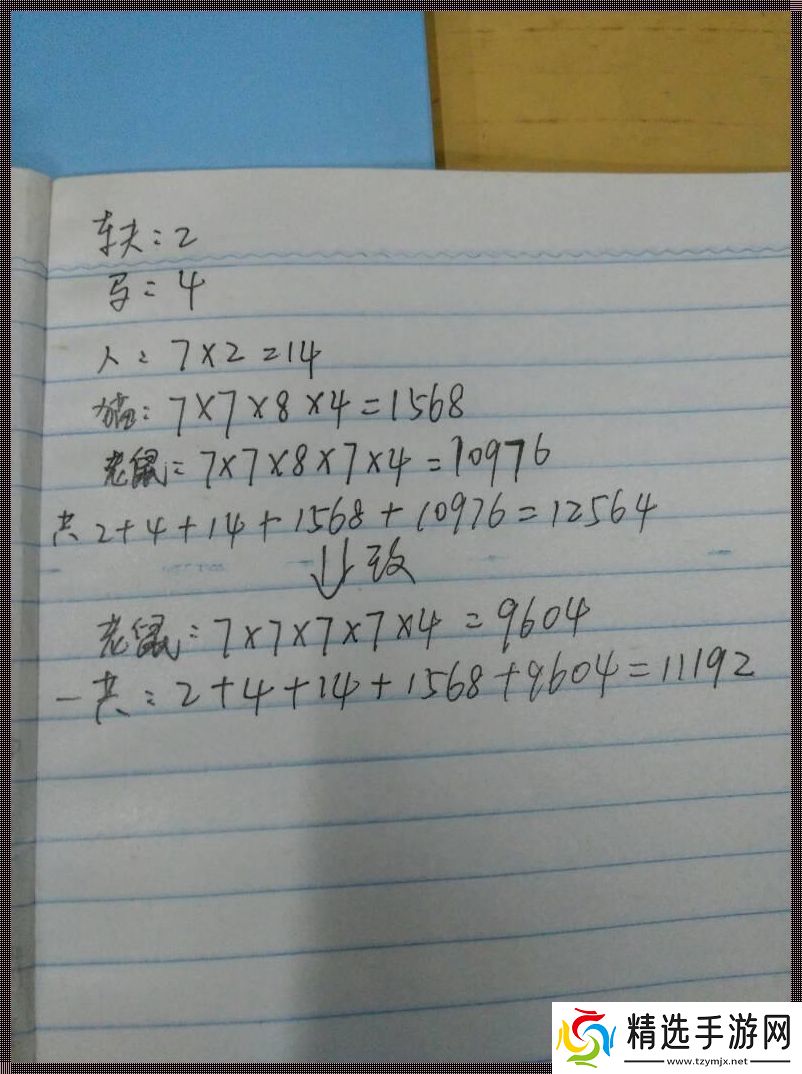 车夫：2
马：4
人：7×2=14
猫：7×7×8×4=1568
老鼠：7×7×8×7×4=10976
共 2+4+14+1568+10976=12564
↓改
老鼠：7×7×7×7×4=9604
一共：2+4+14+1568+9604=11192
精选手游网
www.tzymjx.net